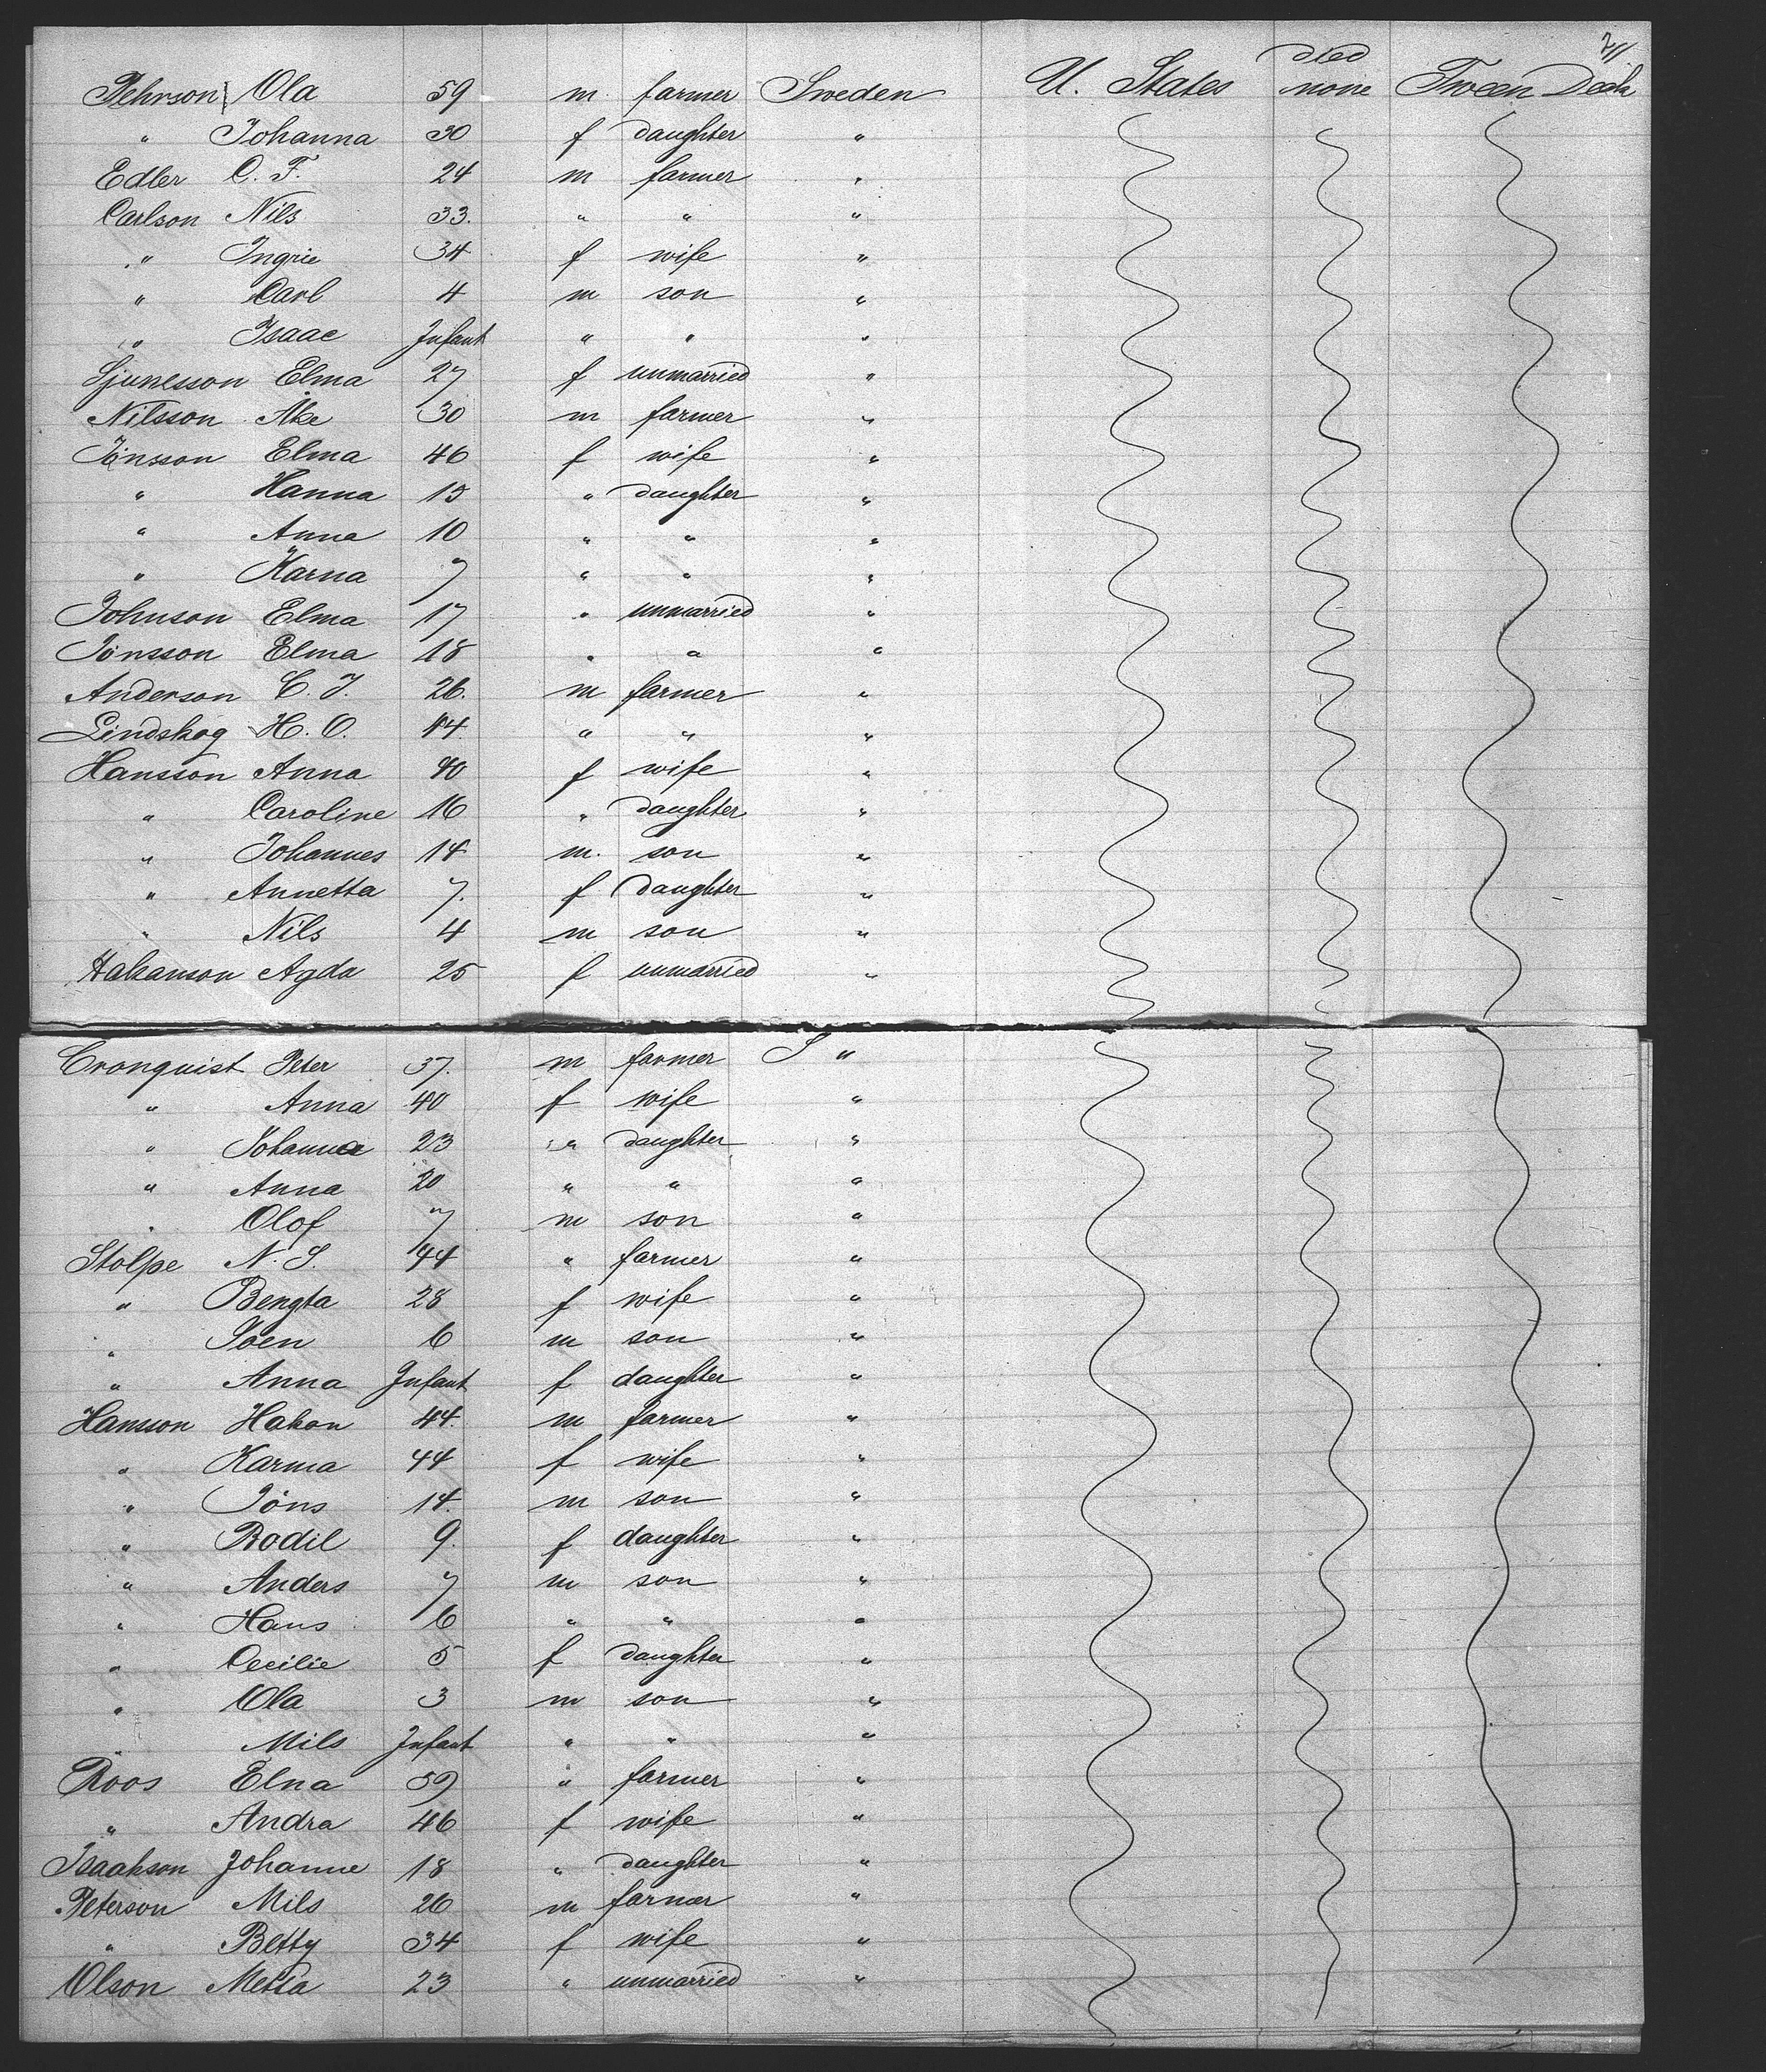 21
died
Pehrson Ola 59 m. farmer Sweden U. States none Tween Deck
" Johanna 30 f daughter "
Edler C. F. 24 m farmer "
Carlson Nils 33. " " "
" Ingrie 34 f wife "
" Carl 4 m son "
" Isaac Infant " " "
Sjunesson Elma 27 f unmarried "
Nilsson Åke 30 m farmer "
Jönsson Elma 46 f wife "
" Hanna 15 " daughter "
" Anna 10 " " "
" Karna 7 " " "
Johnson Elma 17 " unmarried "
Jönsson Elma 18 " " "
Anderson C. J. 26. m farmer "
Lindskog H. O. 44 " " "
Hansson Anna 40 f wife "
" Caroline 16 " daughter "
" Johannes 14 m. son "
" Annetta 7. f daughter "
" Nils 4 m son "
Hakanson Agda 25 f unmarried "
Cronquist Peter 37. m farmer S "
" Anna 40 f wife "
" Johanna 23 " daughter "
" Anna 20 " " "
" Olof 7 m son "
Stolpe N. S. 44 " farmer "
" Bengta 28 f wife "
" Joen 6 m son "
" Anna Infant f daughter "
Hansson Hakon 44. m farmer "
" Karma 44 f wife "
" Jöns 14. m son "
" Bodil 9. f daughter "
" Anders 7 m son "
" Hans 6 " " "
" Cecilie 5 f daughter "
" Ola 3 m son "
" Mils Infant " " "
Roos Elna 59 " farmer "
" Andra 46 f wife "
Isaakson Johanne 18 " daughter "
Peterson Mils 26 m farmer "
" Betty 34 f wife "
Olson Metta 23 " unmarried "